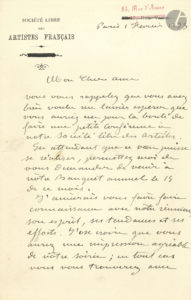 SOCIÉTÉ LIBRE
DES
ARTISTES FRANÇAIS
Paris 1 Février
Mon cher ami
vous vous rappelez que vous avez
bien voulu me laisser espérer que
vous auriez un jour la bonté de
faire une petite conférence à
notre Société libre des Artistes.
En attendant que ce vœu puisse
se réaliser, permettez moi de
vous demander de venir à
notre Banquet annuel le 15
de ce mois.
J'aimerais vous faire faire
connaissance avec notre réunion
son esprit, ses tendances et ses
efforts. J'ose croire que vous
aurez une impression agréable
de votre soirée; en tout cas
vous vous trouverez avec